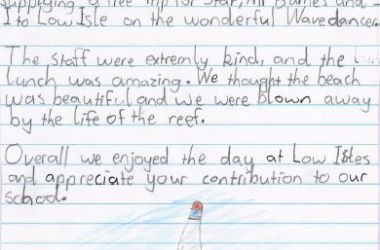 supplying a free trip for Star, Mr Barnes and
I to Low Isle on the wonderful Wavedancer.
The staff were extremly kind, and the
lunch was amazing. We thought the beach
was beautiful and we were blown away
by the life of the reef.
Overall we enjoyed the day at Low Isles
and appreciate your contribution to our
school.